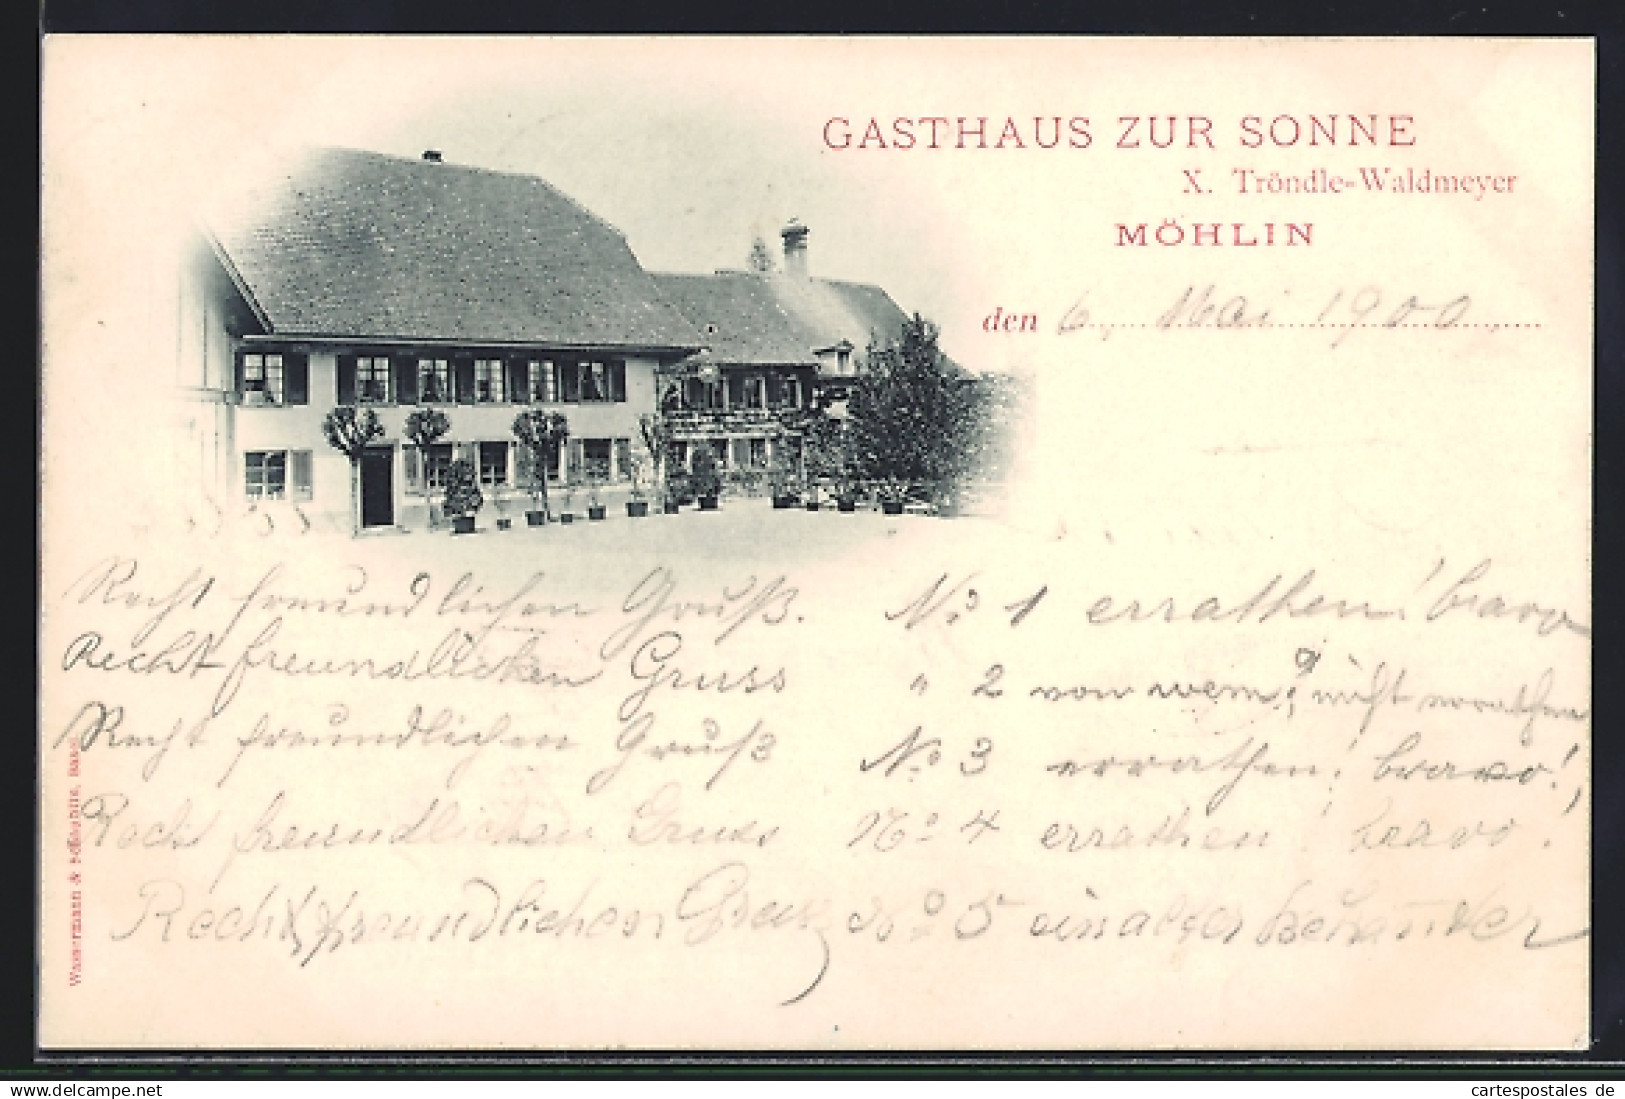 GASTHAUS ZUR SONNE
X. Tröndle-Waldmeyer
MÖHLIN
den 6. Mai 1900
Recht freundlichen Gruß. No 1 errathen! bravo
Recht freundlichen Gruss " 2 von wem? nicht errathen
Recht freundlichen Gruß No 3 errathen! bravo!,
Recht freundlichen Gruss No 4 errathen! bravo!
Recht freundlichen Gruss No 5 ein alter Bekannter
Wassermann & Schäublin, Basel
cartespostales de